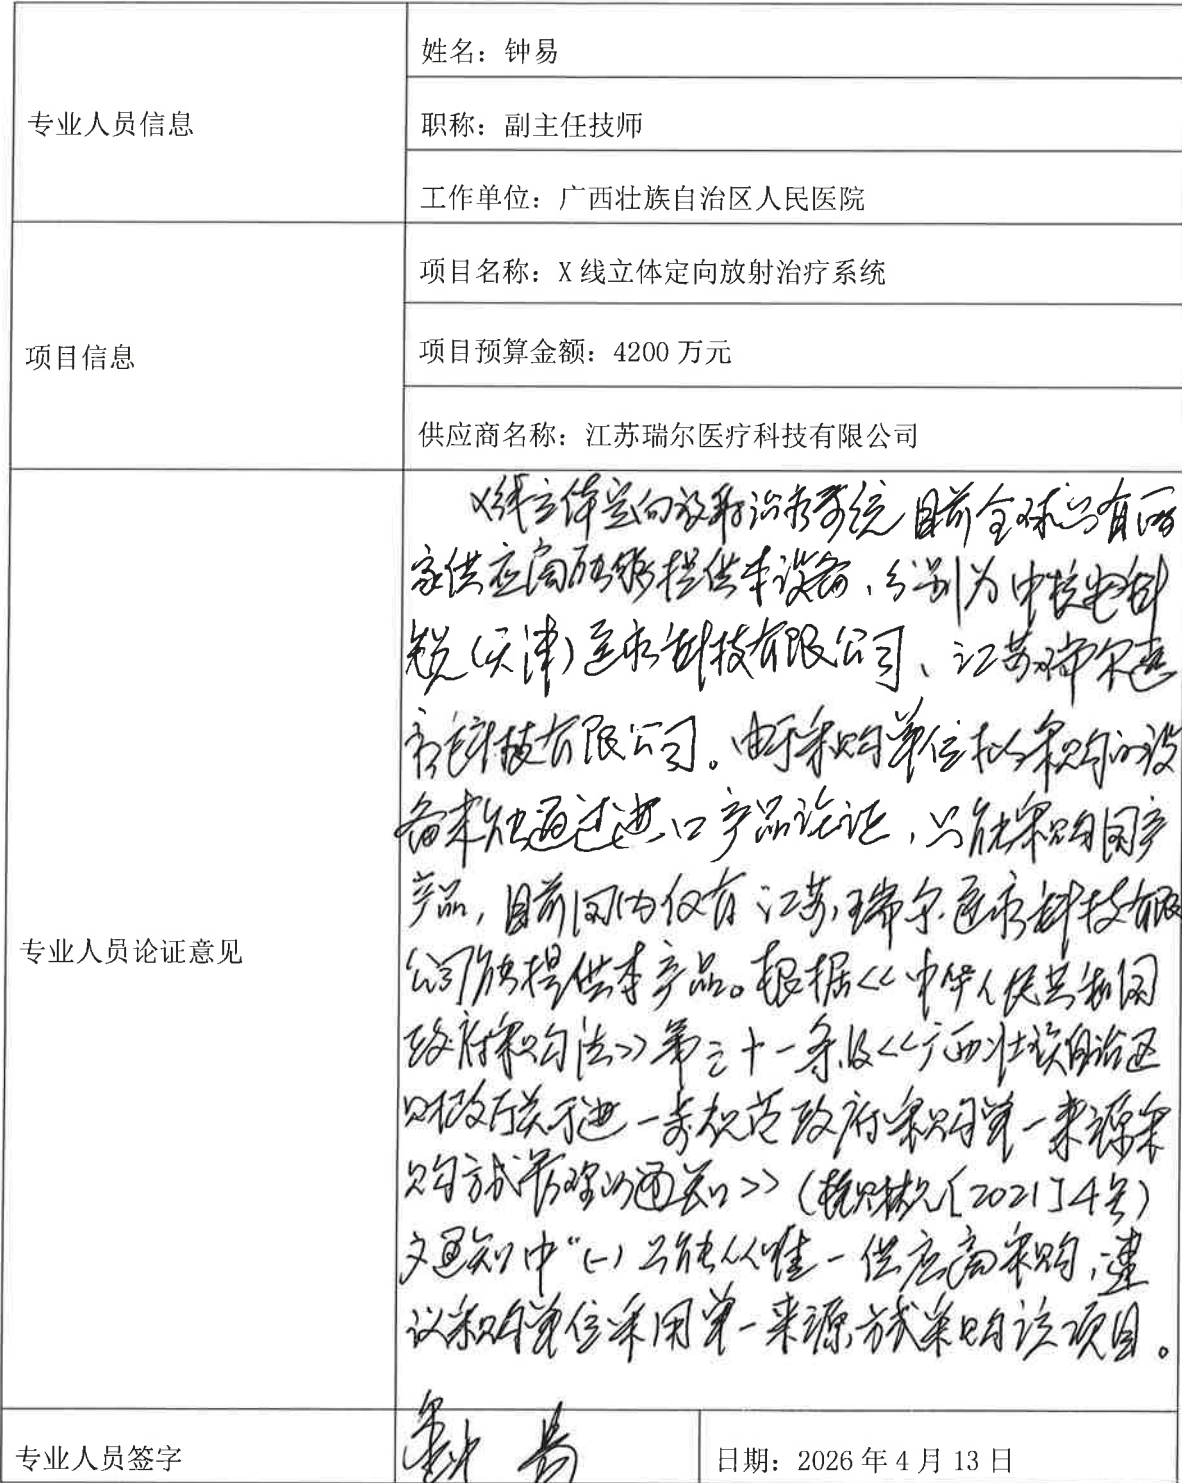 专业人员信息
姓名：钟易
职称：副主任技师
工作单位：广西壮族自治区人民医院
项目信息
项目名称：X 线立体定向放射治疗系统
项目预算金额：4200 万元
供应商名称：江苏瑞尔医疗科技有限公司
专业人员论证意见
X线立体定向放射治疗系统目前全球只有两
家供应商能够提供本设备，分别为中核安科
锐（天津）医疗科技有限公司、江苏瑞尔医
疗科技有限公司。由于采购单位拟采购的设
备未能通过进口产品论证，只能采购国产
产品，目前国内仅有江苏瑞尔医疗科技有限
公司能提供本产品。根据<<中华人民共和国
政府采购法>>第三十一条及<<广西壮族自治区
财政厅关于进一步规范政府采购单一来源采
购方式管理的通知>>（桂财采〔2021〕4号）
文通知中“(一)只能从唯一供应商采购，建
议采购单位采用单一来源方式采购该项目。
专业人员签字
钟易
日期：2026 年 4 月 13 日